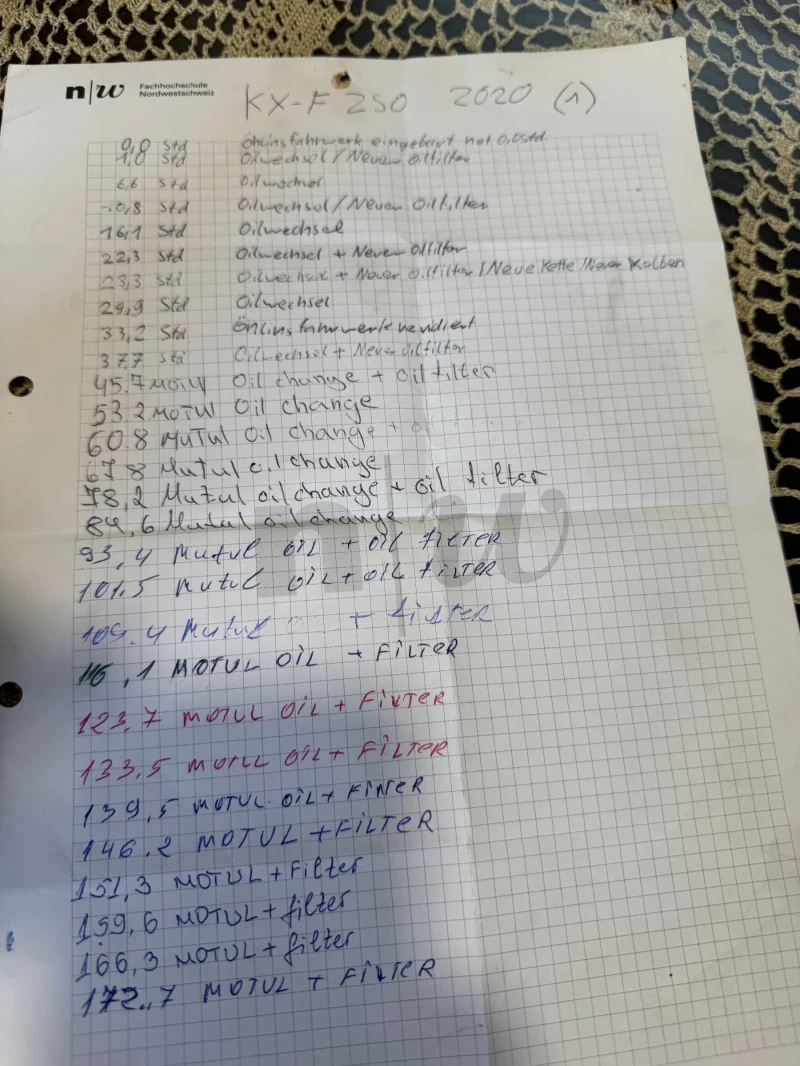 n|w Fachhochschule
Nordwestschweiz
KX-F 250 2020 (1)
0,0 Std Öhlinsfahrwerk eingebaut hat 0,0 Std.
1,0 Std Oilwechsel / Neuer Oilfilter
6,6 Std Oilwechsel
10,8 Std Oilwechsel / Neuer Oilfilter
16,1 Std Oilwechsel
22,3 Std Oilwechsel + Neuer Oilfilter
23,3 Std Oilwechsel + Neuer Oilfilter / Neue Kette / Neuer Kolben
29,9 Std Oilwechsel
33,2 Std Öhlinsfahrwerk revidiert
37,7 Std Oilwechsel + Neuer Oilfilter
45.7 MOTUL Oil change + oil filter
53.2 MOTUL Oil change
60.8 MUTUL Oil change +
67.8 Mutul oil change
78,2 Mutul oil change + oil filter
84,6 Mutul oil change
93,4 Mutul OIL + OIL FILTER
101.5 Mutul OIL + OIL FILTER
109.4 Mutul + FILTER
116,1 MOTUL OIL + FILTER
123.7 MOTUL OIL + FILTER
133.5 MOTUL OIL + FILTER
139,5 MOTUL OIL + FILTER
146.2 MOTUL + FILTER
151,3 MOTUL + Filter
159,6 MOTUL + filter
166,3 MOTUL + filter
172.,7 MOTUL + FILTER
n|w